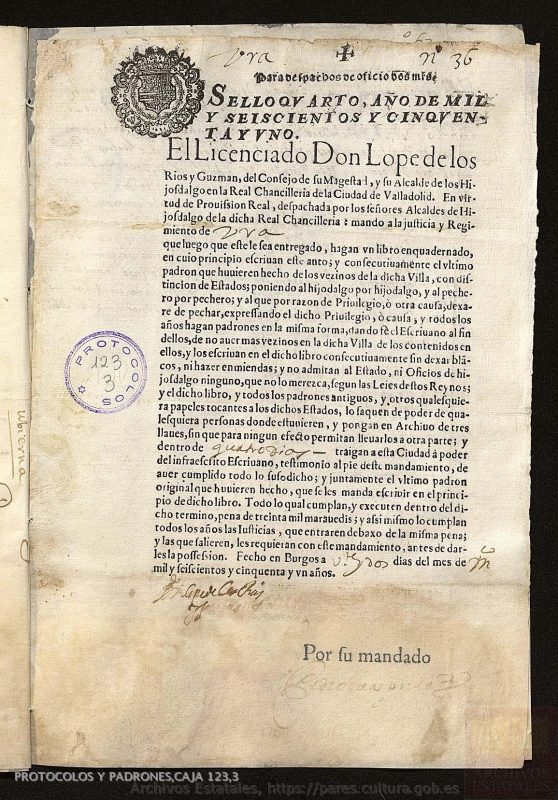 Vra nº 36
Para despachos de oficio dos mrs.
SELLO QVARTO, AÑO DE MIL
Y SEISCIENTOS Y CINQVEN-
TA Y VNO.
El Licenciado Don Lope de los
Rios y Guzman, del Consejo de su Magestad, y su Alcalde de los Hi-
josdalgo en la Real Chancilleria de la Ciudad de Valladolid. En vir-
tud de Prouision Real, despachada por los señores Alcaldes de Hi-
josdalgo de la dicha Real Chancilleria: mando a la justicia y Regi-
miento de vra
que luego que este le sea entregado, hagan vn libro enquadernado,
en cuio principio escriuan este auto; y consecutiuamente el vltimo
padron que huuieren hecho de los vezinos de la dicha Villa, con dis-
tincion de Estados; poniendo al hijodalgo por hijodalgo, y al peche-
ro por pechero; y al que por razon de Priuilegio, ò otra causa, dexa-
re de pechar, expressando el dicho Priuilegio, ò causa, y todos los
años hagan padrones en la misma forma, dando fè el Escriuano al fin
dellos, de no auer mas vezinos en la dicha Villa de los contenidos en
ellos, y los escriuan en el dicho libro consecutiuamente sin dexar blã-
cos, ni hazer enmiendas; y no admitan al Estado, ni Oficios de hi-
josdalgo ninguno, que no lo merezca, segun las Leies destos Reynos;
y el dicho libro, y todos los padrones antiguos, y otros qualesquie-
ra papeles tocantes a los dichos Estados, lo saquen de poder de qua-
lesquiera personas donde estuuieren, y pongan en Archiuo de tres
llaues, sin que para ningun efecto permitan lleuarlos a otra parte; y
dentro de quatro dias traigan a esta Ciudad à poder
del infraescrito Escriuano, testimonio al pie deste mandamiento, de
auer cumplido todo lo susodicho; y juntamente el vltimo padron
original que huuieren hecho, que se les manda escriuir en el princi-
pio de dicho libro. Todo lo qual cumplan, y executen dentro del di-
cho termino, pena de treinta mil marauedis; y assi mismo lo cumplan
todos los años las Iusticias, que entraren debaxo de la misma pena;
y las que salieren, les requieran con este mandamiento, antes de dar-
les la possession. Fecho en Burgos a dias del mes de
mil y seiscientos y cinquenta y vn años.
Por su mandado
PROTOCOLOS
123
3
Ubierna
PROTOCOLOS Y PADRONES,CAJA 123,3
ARCHIVOS ESTATALES
Archivos Estatales, https://pares.cultura.gob.es